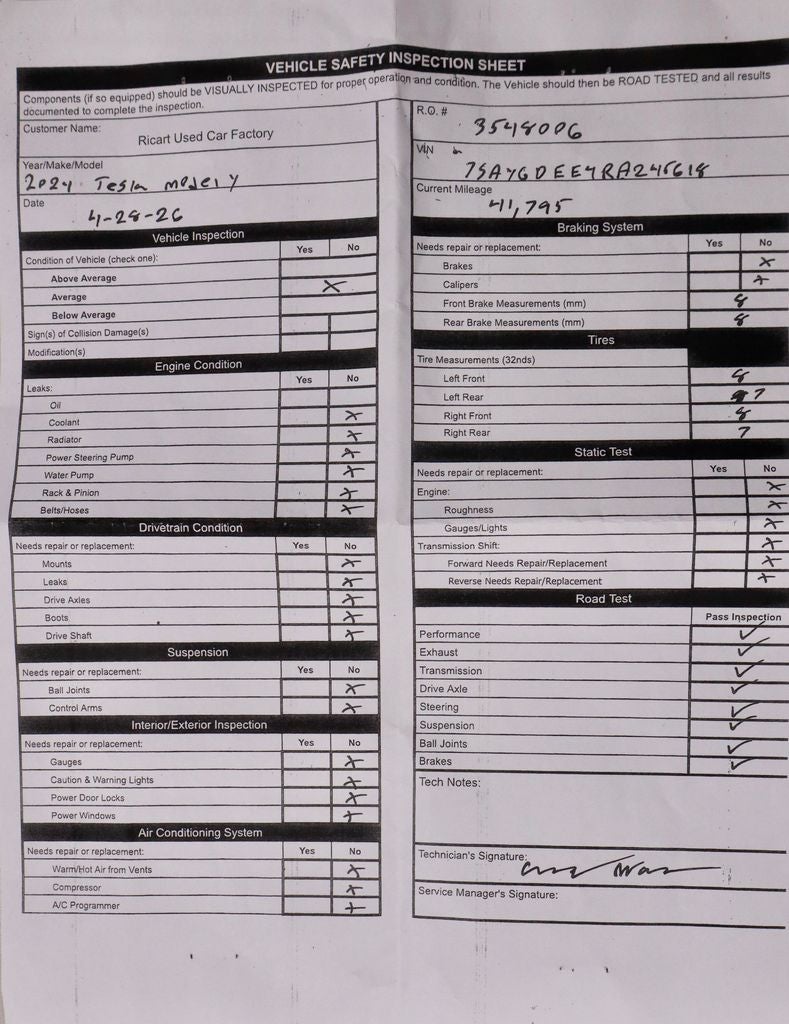 VEHICLE SAFETY INSPECTION SHEET
Components (if so equipped) should be VISUALLY INSPECTED for proper operation and condition. The Vehicle should then be ROAD TESTED and all results
documented to complete the inspection.
Customer Name:
Ricart Used Car Factory
Year/Make/Model
2024 Tesla Model Y
Date
4-28-26
Vehicle Inspection
Condition of Vehicle (check one): Yes No
Above Average
Average X
Below Average
Sign(s) of Collision Damage(s)
Modification(s)
Engine Condition
Leaks: Yes No
Oil
Coolant X
Radiator X
Power Steering Pump X
Water Pump X
Rack & Pinion X
Belts/Hoses X
Drivetrain Condition
Needs repair or replacement: Yes No
Mounts X
Leaks X
Drive Axles X
Boots X
Drive Shaft X
Suspension
Needs repair or replacement: Yes No
Ball Joints X
Control Arms X
Interior/Exterior Inspection
Needs repair or replacement: Yes No
Gauges X
Caution & Warning Lights X
Power Door Locks X
Power Windows X
Air Conditioning System
Needs repair or replacement: Yes No
Warm/Hot Air from Vents X
Compressor X
A/C Programmer X
R.O. #
3548006
VIN
7SAYGDEE4RA245618
Current Mileage
41,795
Braking System
Needs repair or replacement: Yes No
Brakes X
Calipers X
Front Brake Measurements (mm) 8
Rear Brake Measurements (mm) 8
Tires
Tire Measurements (32nds)
Left Front 8
Left Rear 7
Right Front 8
Right Rear 7
Static Test
Needs repair or replacement: Yes No
Engine: X
Roughness X
Gauges/Lights X
Transmission Shift: X
Forward Needs Repair/Replacement X
Reverse Needs Repair/Replacement X
Road Test
Pass Inspection
Performance ✓
Exhaust ✓
Transmission ✓
Drive Axle ✓
Steering ✓
Suspension ✓
Ball Joints ✓
Brakes ✓
Tech Notes:
Technician's Signature:
Service Manager's Signature: